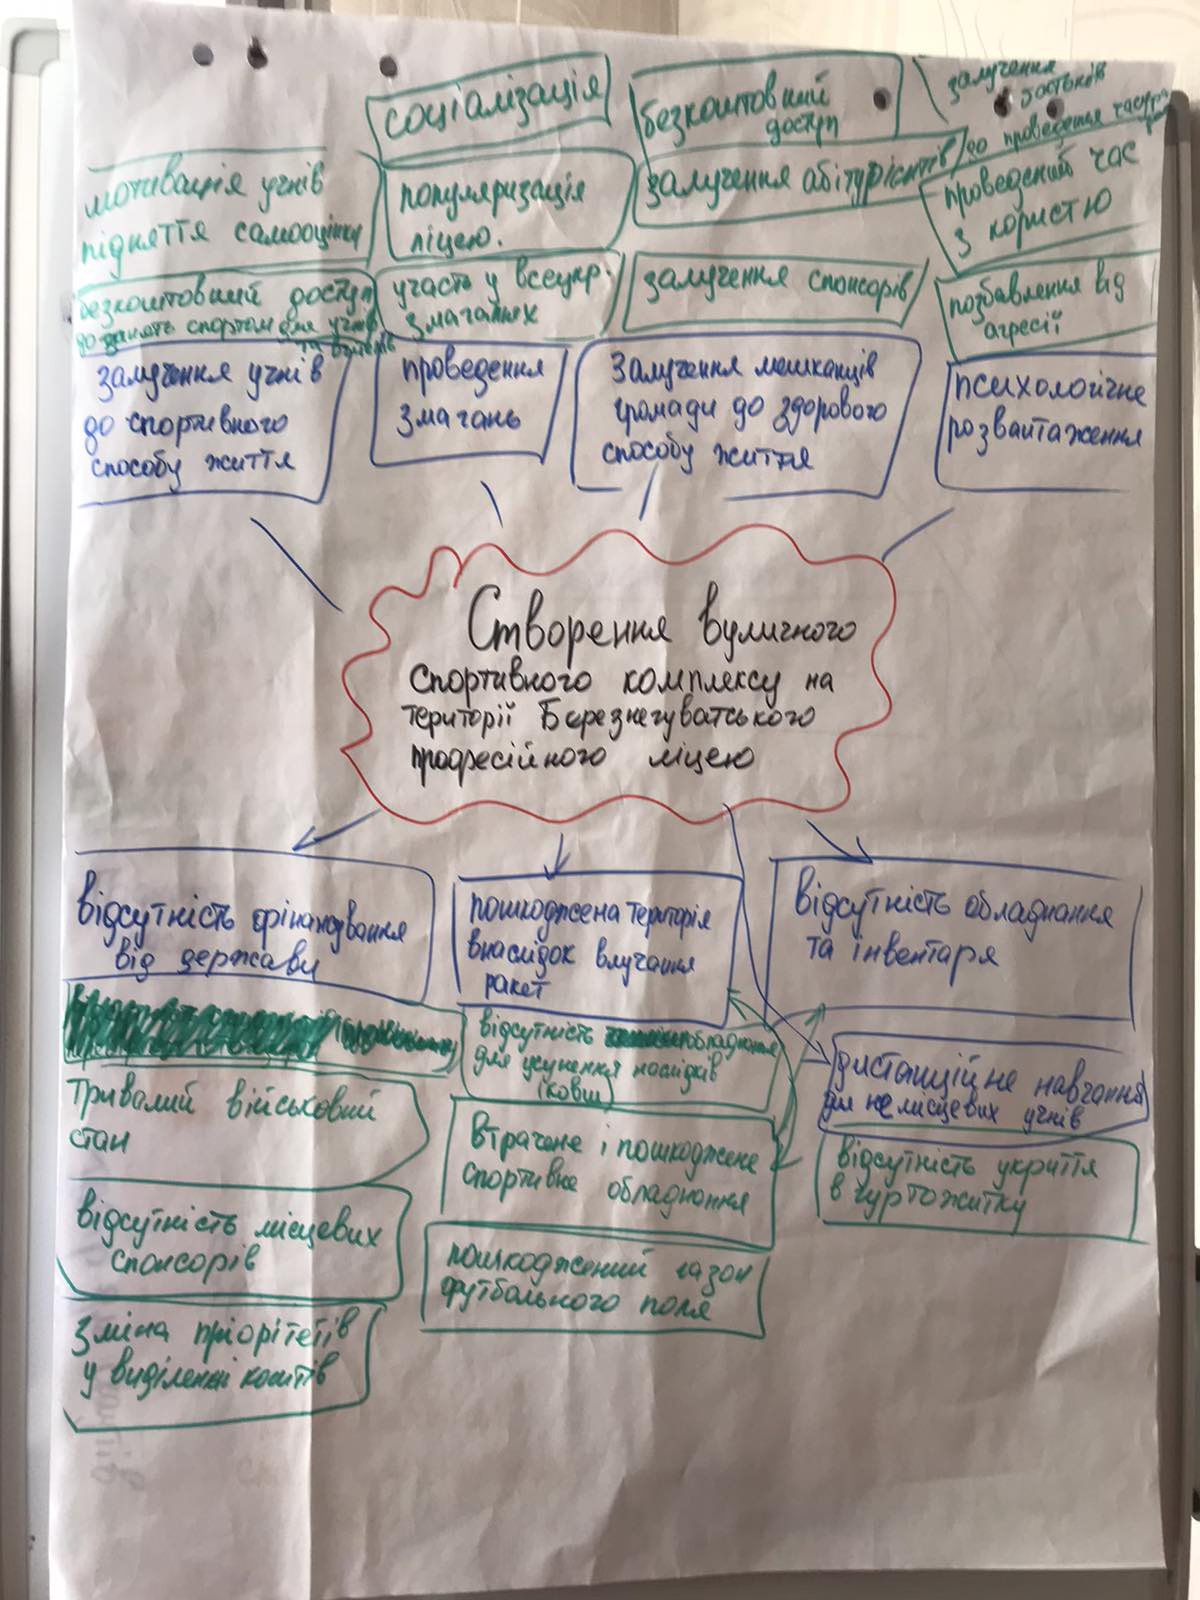 соціалізація
безкоштовний
доступ
залучення
батьків
до проведення часу
мотивація учнів
підняття самооцінки
популяризація
ліцею.
залучення абітурієнтів
проведений час
з користю
безкоштовний доступ
до занять спортом для учнів
та вчителів
участь у всеукр.
змаганнях
залучення спонсорів
позбавлення від
агресії
залучення учнів
до спортивного
способу життя
проведення
змагань
залучення мешканців
громади до здорового
способу життя
психологічне
розвантаження
Створення вуличного
спортивного комплексу на
території Березнегуватського
професійного ліцею
відсутність фінансування
від держави
пошкоджена територія
внаслідок влучання
ракет
відсутність обладнання
та інвентаря
тривалий військовий
стан
відсутність місцевих
спонсорів
зміна пріорітетів
у виділенні коштів
відсутність обладнання
для усунення наслідків
(ковш)
втрачене і пошкоджене
спортивне обладнання
пошкоджений газон
футбольного поля
дистанційне навчання
для не місцевих учнів
відсутність укриття
в гуртожитку